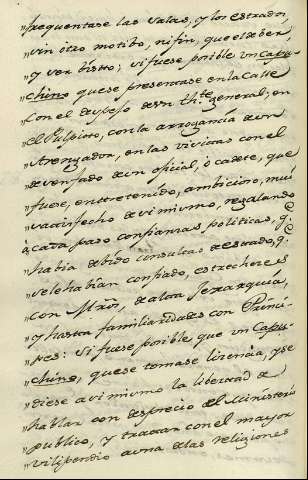 "frequentase las salas, y los estrados,
"sin otro motibo, ni fin, que el ver,
"y ser bisto; si fuese posible un Capu-
"chino que se presentase en la Calle
"con el despejo de un Thte. general; en
"el Pulpito, con la arrogancia de un
"Arengador, en las visitas con el
"desenfado de un oficial, ò cadete, que
"fuese, entretenido, ambicioso, mui
"satisfecho de si mismo, regalando
"à cada paso confianzas, politicas, q.e
"habia debido consultas de estado, q.e
"se le habian confiado, estrecheses
"con de alta Jerarquia,
"y hasta familiaridades con Princi-
"pes: si fuese posible que un Capu-
"chino, que se tomase licencia, y se
"diese a si mismo la libertad de
"hablar con desprecio del Ministerio
"publico, y tratar con el mayor
"vilipendio a una de las religiones